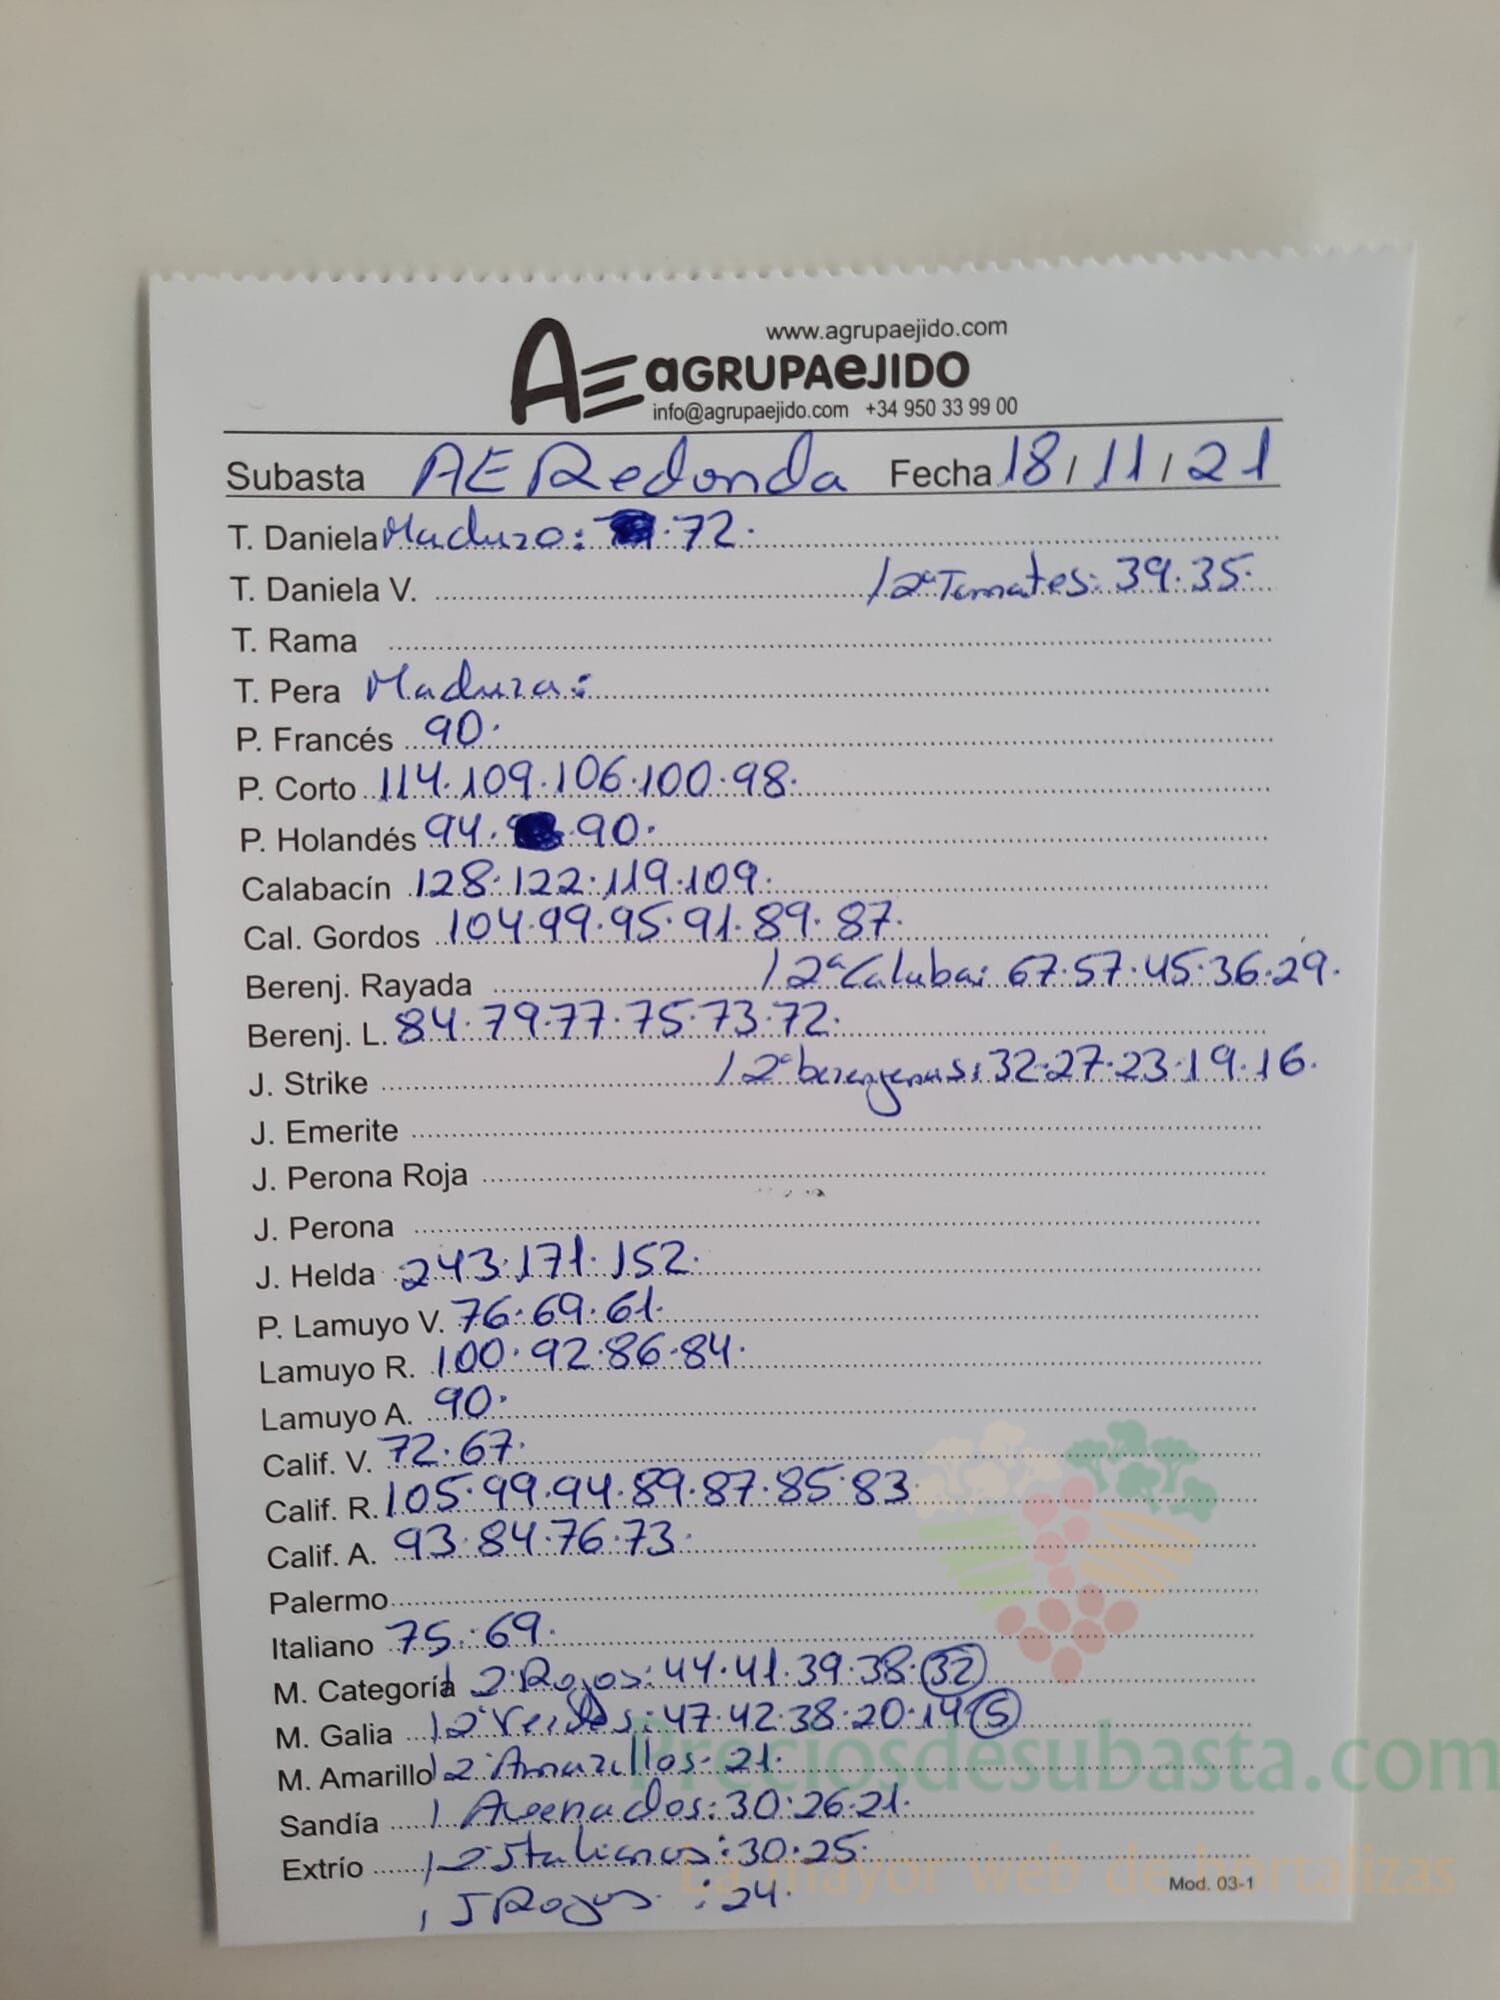 www.agrupaejido.com
AE aGRUPAeJIDO
info@agrupaejido.com +34 950 33 99 00
Subasta AE Redonda Fecha 18/11/21
T. Daniela Maduro: 72.
T. Daniela V. / 2ª Tomates: 39.35.
T. Rama
T. Pera Madura:
P. Francés 90.
P. Corto 114.109.106.100.98.
P. Holandés 94. 90.
Calabacín 128.122.119.109.
Cal. Gordos 104.99.95.91.89.87.
Berenj. Rayada / 2ª Calaba: 67.57.45.36.29.
Berenj. L. 84.79.77.75.73.72.
J. Strike / 2ª berenjenas: 32.27.23.19.16.
J. Emerite
J. Perona Roja
J. Perona
J. Helda 243.171.152.
P. Lamuyo V. 76.69.61.
Lamuyo R. 100.92.86.84.
Lamuyo A. 90.
Calif. V. 72.67.
Calif. R. 105.99.94.89.87.85.83
Calif. A. 93.84.76.73.
Palermo
Italiano 75.69.
M. Categoría / 2ª Rojos: 44.41.39.38.32
M. Galia / 2ª Verdes: 47.42.38.20.14 5
M. Amarillo / 2ª Amarillos. 21.
Preciosdesubasta.com
Sandía / Asenados: 30.26.21.
Extrío / 2ª Italianos: 30.25.
La mayor web de hortalizas
Mod. 03-1
Rojos : 24.